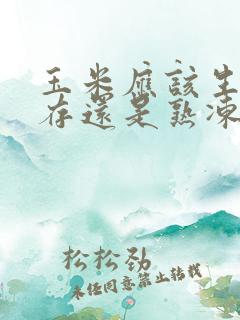 玉米應該生
存還是熟凍
松松劲
未经同意禁止转载